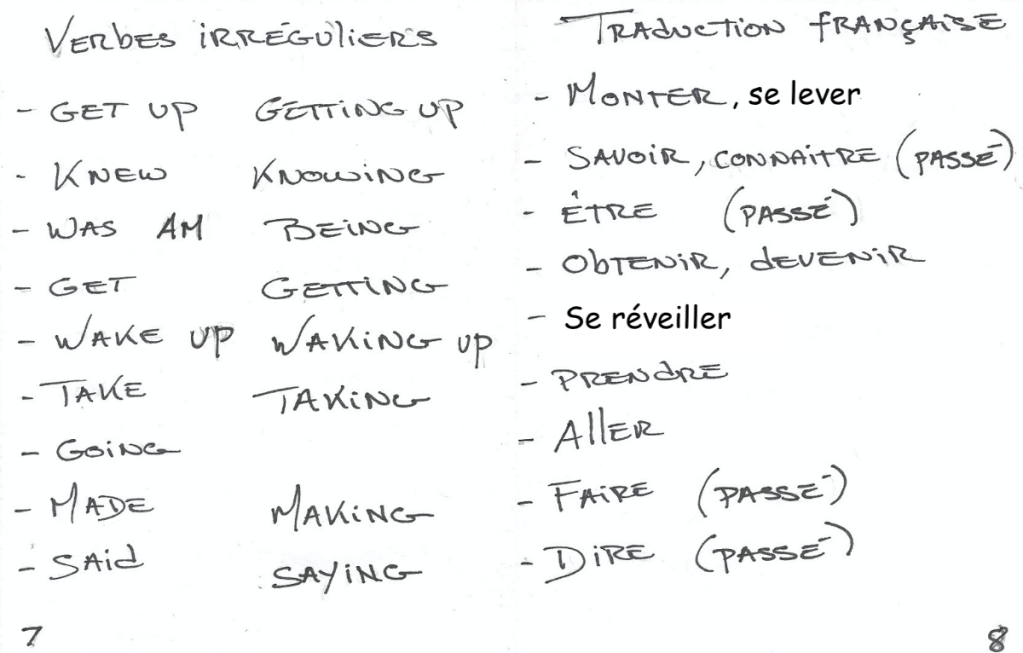 VERbES iRRÉGUliERS
- GET UP GETTiNG UP
- KNEW KNOWiNG
- WAS AM BEiNG
- GET GETTiNG
- WAKE UP WAKiNG UP
- TAKE TAKiNG
- GOiNG
- MADE MAKiNG
- SAid SAYiNG
7
TRAduCTiON fRANÇAiSE
- MONTER, se lever
- SAVOiR, CONNAiTRE (PASSÉ)
- ÊTRE (PASSÉ)
- ObTENiR, dEVENiR
- Se réveiller
- PRENdRE
- AllER
- FAiRE (PASSÉ)
- DiRE (PASSÉ)
8